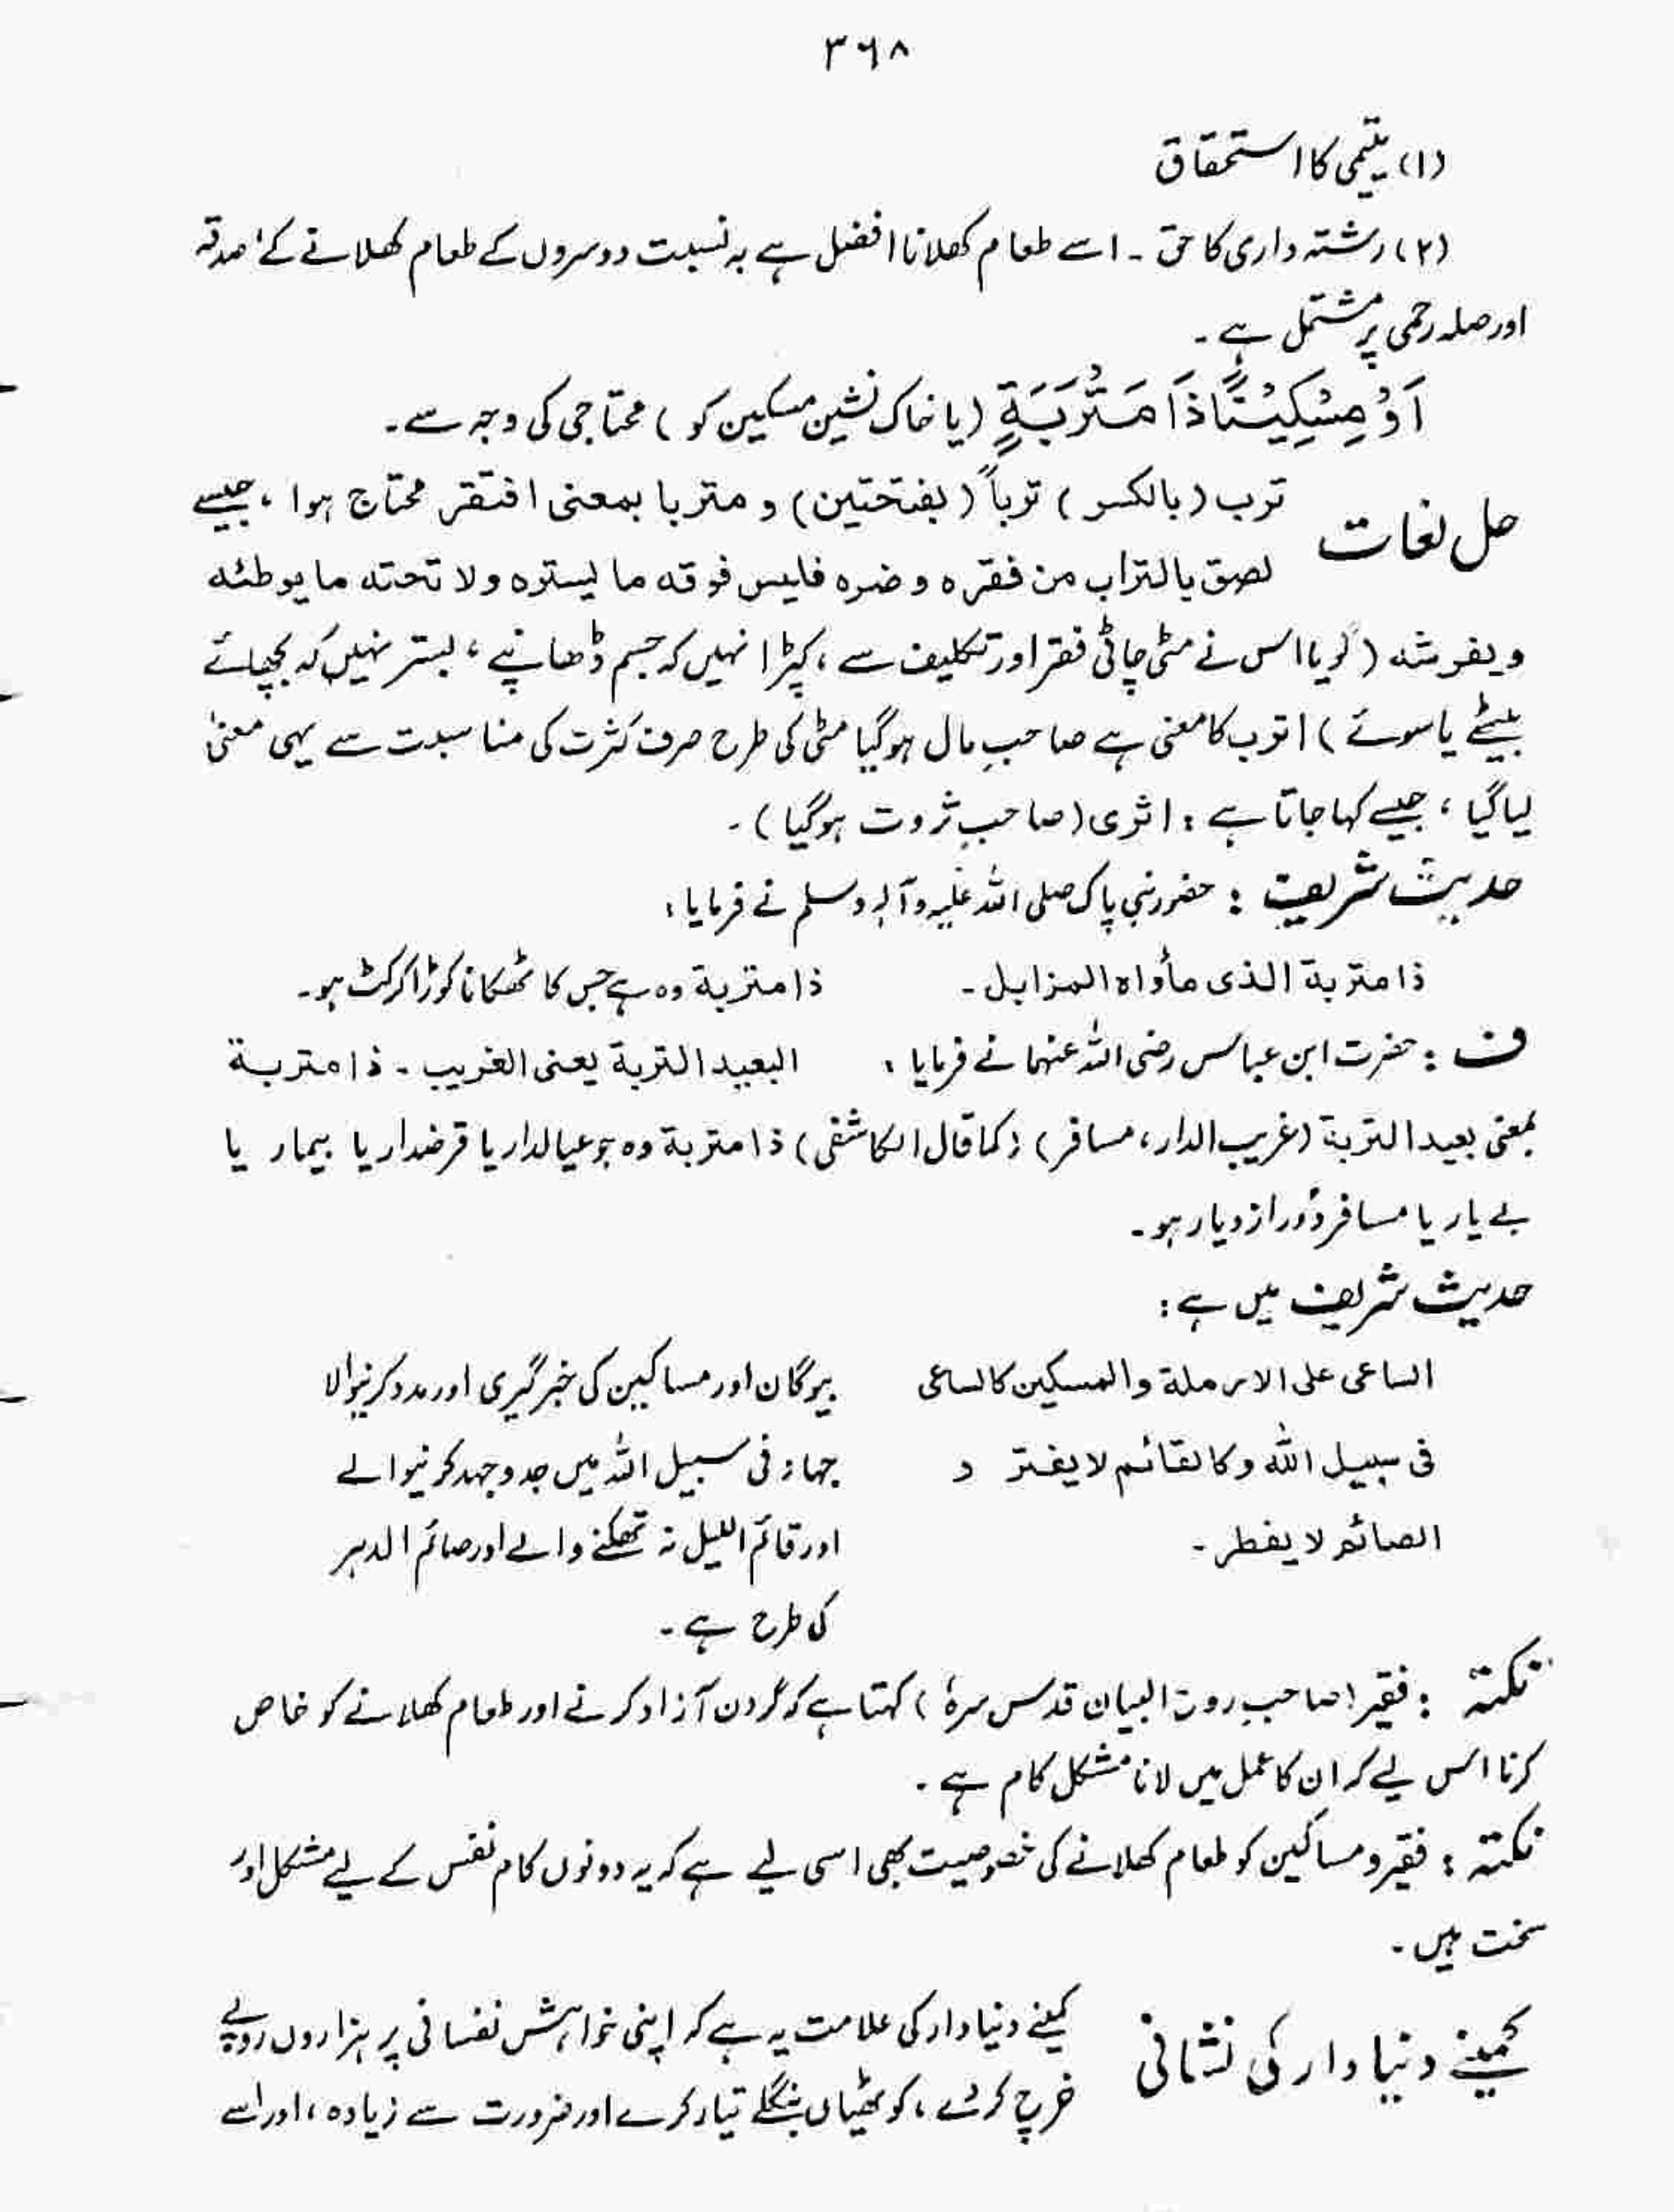 ٣٦٨
(۱) یتیمی کا استحقاق
(۲) رشتہ داری کا حق ۔ اسے طعام کھلانا افضل ہے بہ نسبت دوسروں کے طعام کھلانے کے، صدقہ
اور صلہ رحمی پر مشتمل ہے ۔
اَوْ مِسْکِیْنًا ذَا مَتْرَبَةٍ (یا خاک نشین مسکین کو) محتاجی کی وجہ سے ۔
حل لغات
ترب (بالکسر) ترباً (بفتحتین) و متربا بمعنی افتقر محتاج ہوا ، جیسے
لصق بالتراب من فقره و ضره فلیس فوقه ما یستره ولا تحته ما یوطئه
و یفرشه (گویا اس نے مٹی چاٹی فقر اور تکلیف سے ، کپڑا نہیں کہ جسم ڈھانپے ، بستر نہیں کہ بچھائے
بیٹھے یا سوئے) اترب کا معنی ہے صاحبِ مال ہوگیا مٹی کی طرح صرف کثرت کی مناسبت سے یہی معنیٰ
لیا گیا ، جیسے کہا جاتا ہے : اثری (صاحبِ ثروت ہوگیا) ۔
حدیث شریف : حضور نبی پاک صلی اللہ علیہ وآلہ وسلم نے فرمایا :
ذا متربة الذی مأواه المزابل ۔ ذا متربة وہ ہے جس کا ٹھکانا کوڑا کرکٹ ہو ۔
ف : حضرت ابن عباس رضی اللہ عنہما نے فرمایا : البعید التربة یعنی الغریب ۔ ذا متربة
بمعنی بعید التربة (غریب الدار، مسافر) (کما قال الکاشفی) ذا متربة وہ جو عیالدار یا قرضدار یا بیمار یا
بے یار یا مسافر دُور از دیار ہو ۔
حدیث شریف میں ہے :
الساعی علی الارملة والمسکین کالساعی
فی سبیل اللہ وکالقائم لا یفتر و
الصائم لا یفطر ۔
بیوگان اور مساکین کی خبرگیری اور مدد کرنیوالا
جہاد فی سبیل اللہ میں جدوجہد کرنیوالے
اور قائم اللیل نہ تھکنے والے اور صائم الدہر
کی طرح ہے ۔
نکتہ : فقیر (صاحبِ روح البیان قدس سرہٗ) کہتا ہے کہ گردن آزاد کرنے اور طعام کھلانے کو خاص
کرنا اس لیے کہ ان کا عمل میں لانا مشکل کام ہے ۔
نکتہ : فقیر و مساکین کو طعام کھلانے کی خصوصیت بھی اسی لیے ہے کہ یہ دونوں کام نفس کے لیے مشکل اور
سخت ہیں ۔
کمینے دنیا دار کی نشانی
کمینے دنیا دار کی علامت یہ ہے کہ اپنی خواہش نفسانی پر ہزاروں روپے
خرچ کرئے ، کوٹھیاں بنگلے تیار کرے اور ضرورت سے زیادہ ، اور اسے